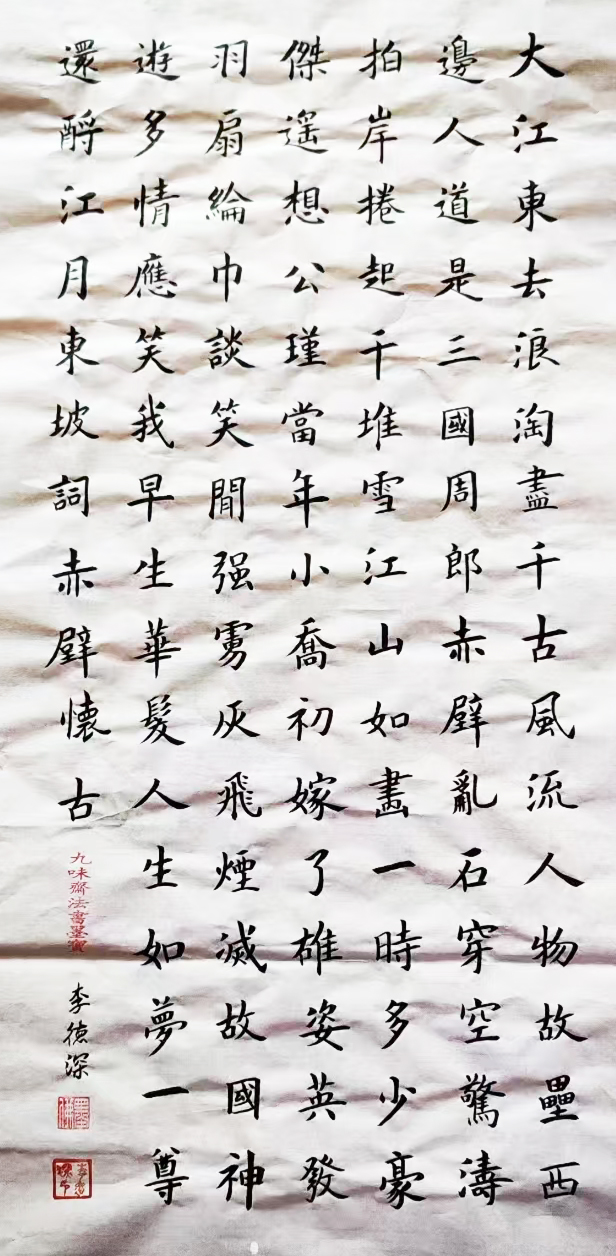 大江東去浪淘盡千古風流人物故壘西
邊人道是三國周郎赤壁亂石穿空驚濤
拍岸捲起千堆雪江山如畫一時多少豪
傑遙想公瑾當年小喬初嫁了雄姿英發
羽扇綸巾談笑間强虜灰飛煙滅故國神
遊多情應笑我早生華髮人生如夢一尊
還酹江月東坡詞赤壁懷古
九味齋法書墨寶
李德深